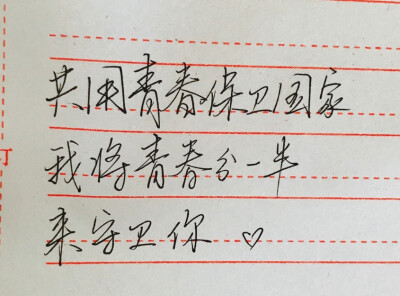 共用青春保卫国家
我将青春分一半
来守卫你♡